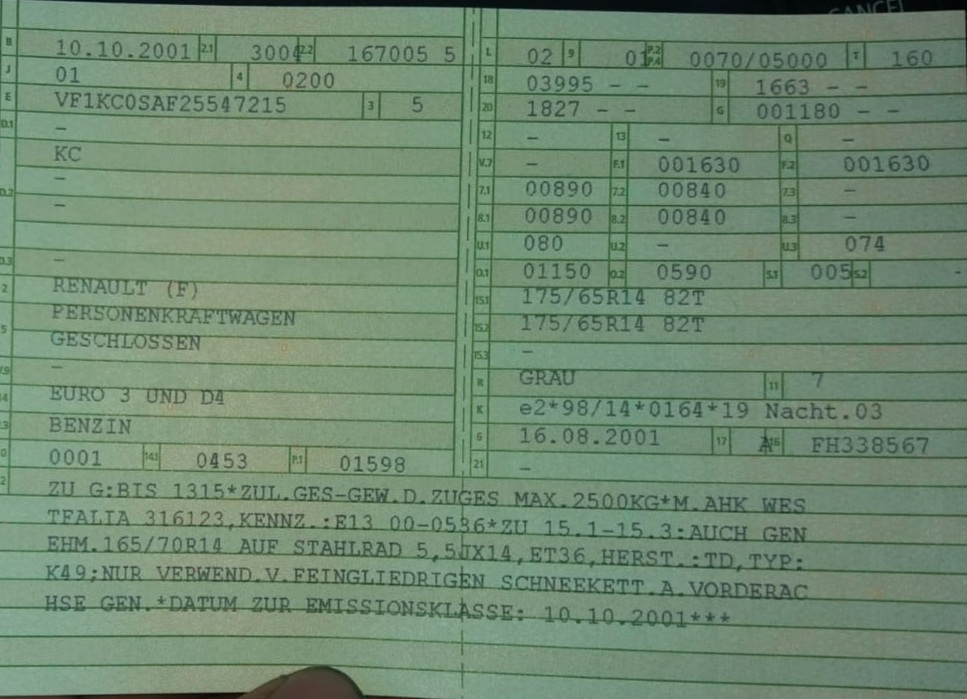 CANCEL
B 10.10.2001 2.1 3004 2.2 167005 5 L 02 9 01 P.2 P.4 0070/05000 T 160
J 01 4 0200 18 03995 - - 19 1663 - -
E VF1KC0SAF25547215 3 5 20 1827 - - G 001180 - -
D.1 - 12 - 13 - Q -
KC V.7 - F.1 001630 F.2 001630
D.2 - 7.1 00890 7.2 00840 7.3 -
- 8.1 00890 8.2 00840 8.3 -
U.1 080 U.2 - U.3 074
D.3 - O.1 01150 O.2 0590 S.1 005 S.2 -
2 RENAULT (F) 15.1 175/65R14 82T
5 PERSONENKRAFTWAGEN 15.2 175/65R14 82T
GESCHLOSSEN 15.3 -
V.9 - R GRAU 11 7
14 EURO 3 UND D4 K e2*98/14*0164*19 Nacht.03
P.3 BENZIN 6 16.08.2001 17 A 16 FH338567
10 0001 14.1 0453 P.1 01598 21 -
22 ZU G:BIS 1315*ZUL.GES-GEW.D.ZUGES MAX.2500KG*M.AHK WES
TFALIA 316123,KENNZ.:E13 00-0536*ZU 15.1-15.3:AUCH GEN
EHM.165/70R14 AUF STAHLRAD 5,5JX14,ET36,HERST.:TD,TYP:
K49;NUR VERWEND.V.FEINGLIEDRIGEN SCHNEEKETT.A.VORDERAC
HSE GEN.*DATUM ZUR EMISSIONSKLASSE: 10.10.2001***